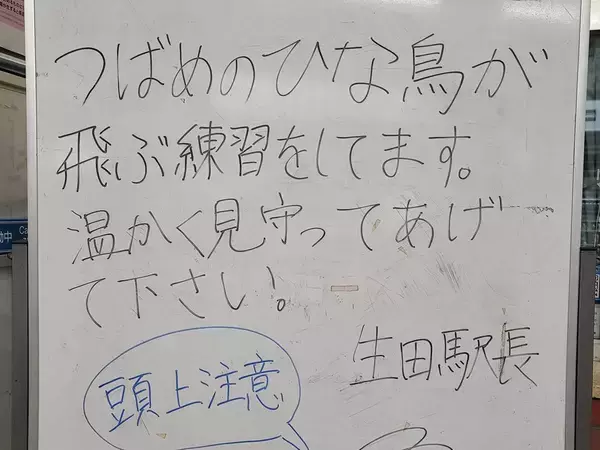 つばめのひな鳥が
飛ぶ練習をしてます。
温かく見守ってあげ
て下さい!
生田駅長
頭上注意